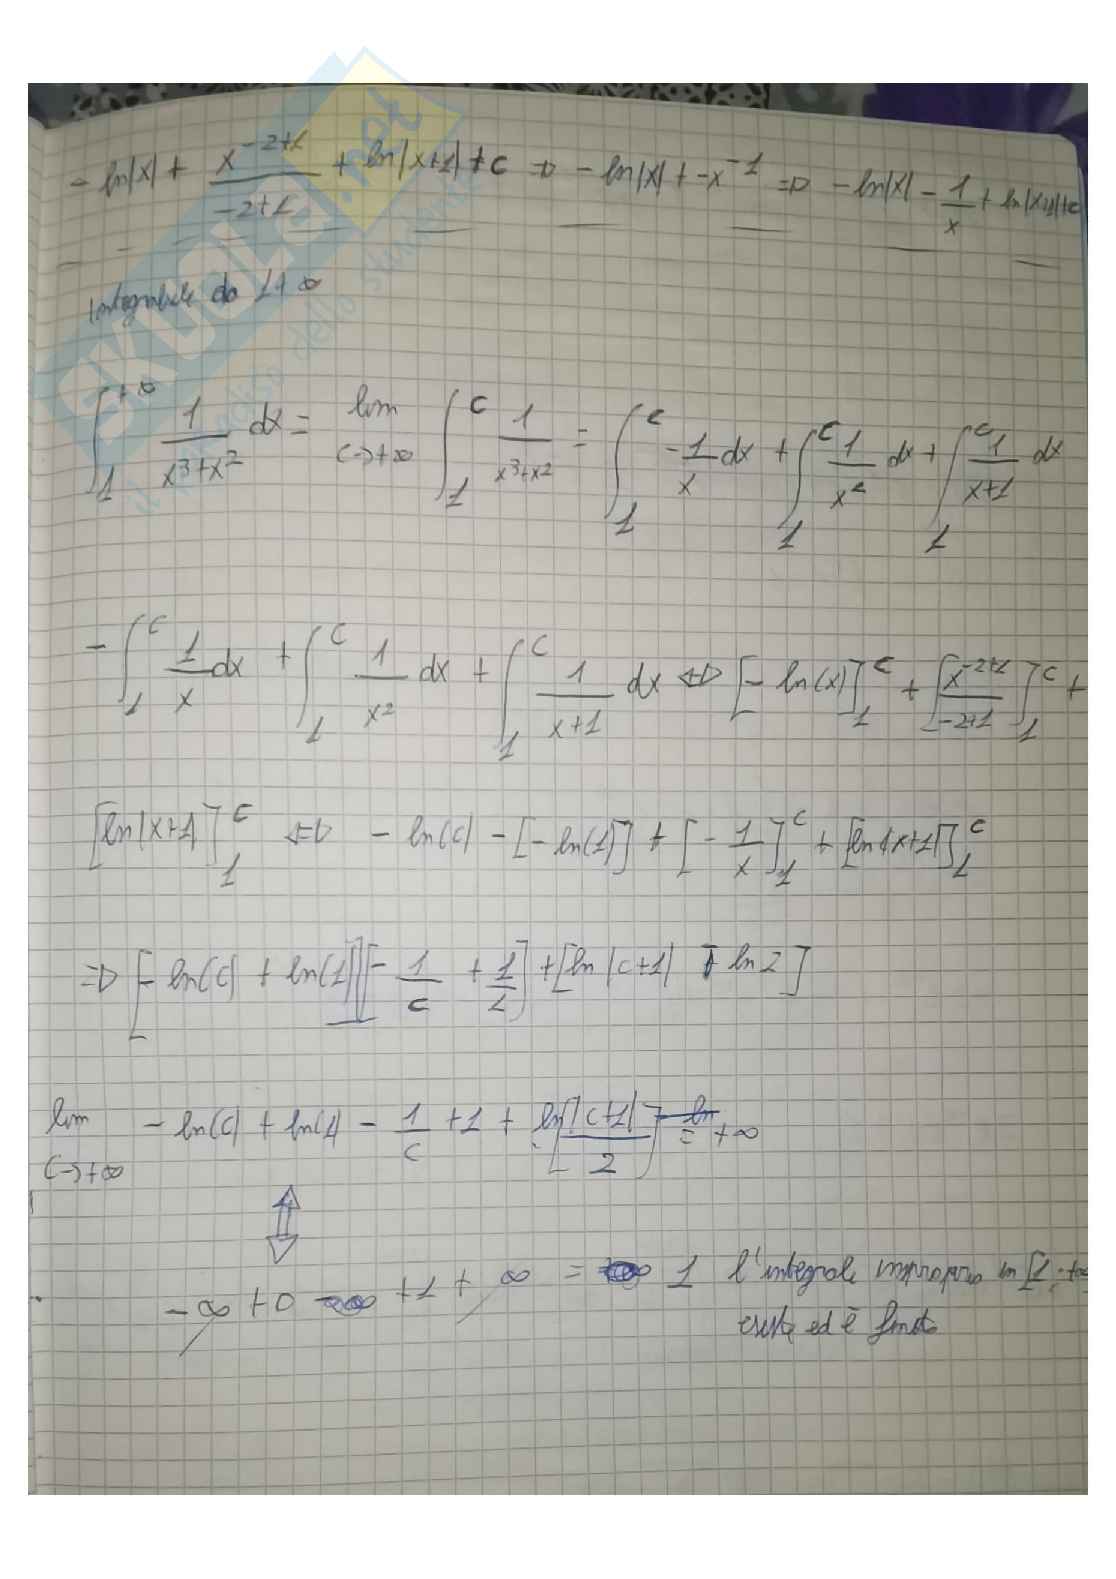 - ln|x| + x^{-2+1}/(-2+1) + ln|x+1| + c ⇒ - ln|x| + -x^{-1} ⇒ - ln|x| - 1/x + ln|x+1| + c
Integrale da 1 + ∞
∫_1^{+∞} 1/(x³+x²) dx = lim_{c→+∞} ∫_1^c 1/(x³+x²) = ∫_1^c -1/x dx + ∫_1^c 1/x² dx + ∫_1^c 1/(x+1) dx
- ∫_1^c 1/x dx + ∫_1^c 1/x² dx + ∫_1^c 1/(x+1) dx ⇔ [- ln(x)]_1^c + [x^{-2+1}/(-2+1)]_1^c +
[ln|x+1|]_1^c ⇔ - ln(c) - [- ln(1)] + [- 1/x]_1^c + [ln|x+1|]_1^c
⇒ [- ln(c) + ln(1)] [- 1/c + 1/1] + [ln|c+1| - ln 2]
lim_{c→+∞} - ln(c) + ln(1) - 1/c + 1 + ln[|c+1|/2] = +∞
⇕
- ∞ + 0 + 1 + ∞ = 1 l'integrale improprio in [1, +∞
esiste ed è finito
SKUOLA.not
il paradiso dello studente